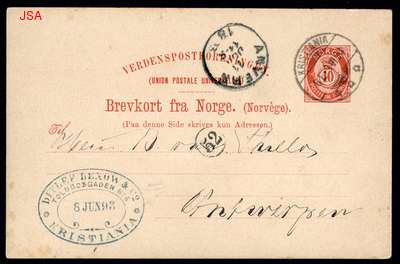 JSA
VERDENSPOSTFORENINGEN.
(UNION POSTALE UNIVERSELLE)
Brevkort fra Norge. (Norvège).
(Paa denne Side skrives kun Adressen.)
KRISTIANIA
10
ANVERS
Til
Herrn
52
Antwerpen
DITLEF LEXOW & Co
TOLDBODGADEN
8 JUN 93
KRISTIANIA